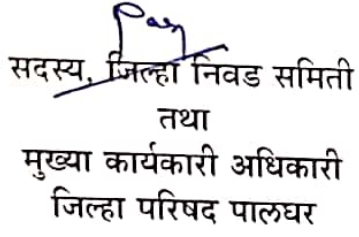 सदस्य, जिल्हा निवड समिती
तथा
मुख्या कार्यकारी अधिकारी
जिल्हा परिषद पालघर